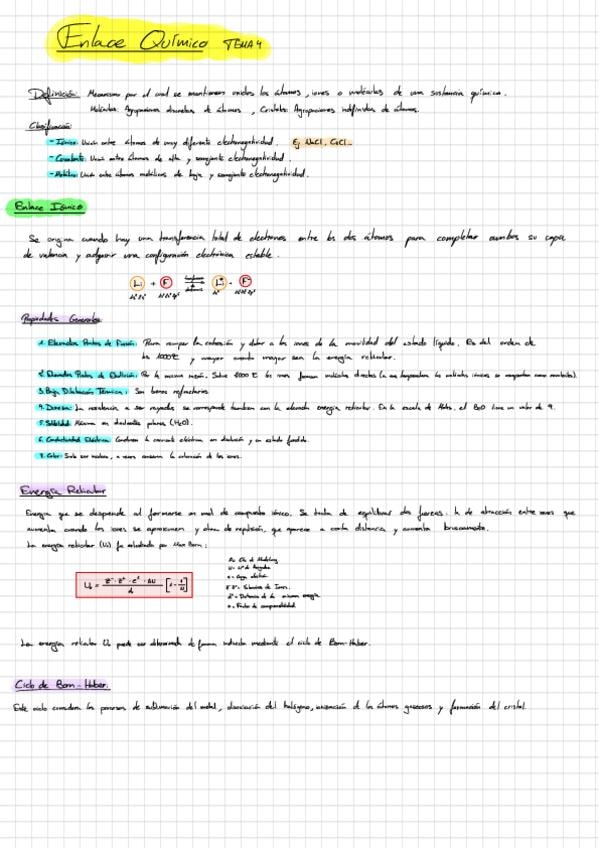 Enlace Químico TEMA 4
Definición: Mecanismo por el cual se mantienen unidos los átomos, iones o moléculas de una sustancia química.
Moléculas: Agrupaciones discretas de átomos, Cristales: Agrupaciones indefinidas de átomos.
Clasificación:
- Iónico: Unión entre átomos de muy diferente electronegatividad. Ej NaCl, CaCl...
- Covalente: Unión entre átomos de alta y semejante electronegatividad.
- Metálico: Unión entre átomos metálicos de baja y semejante electronegatividad.
Enlace Iónico
Se origina cuando hay una transferencia total de electrones entre los dos átomos para completar ambos su capa
de valencia y adquirir una configuración electrónica estable.
Li + F Li+ - F-
Propiedades Generales
1. Elevados Puntos de Fusión: Para romper la cohesión y dotar a los iones de la movilidad del estado líquido. Es del orden de
los 1000ºC y mayor cuanto mayor sea la energía reticular.
2. Elevados Puntos de Ebullición: Por la misma razón. Sobre
3. Baja Dilatación Térmica: Son buenos refractarios.
4. Dureza: La resistencia a ser rayados se corresponde también con la elevada energía reticular. En la escala de Mohs, el BeO tiene un valor de 9.
5. Solubilidad: Máxima en disolventes polares (H2O).
6. Conductividad Eléctrica: Conducen la corriente eléctrica en disolución y en estado fundido.
7. Color: Suele ser incoloro, a veces la coloración de los iones.
Energía Reticular
Energía que se desprende al formarse un mol de compuesto iónico. Se trata de equilibrar dos fuerzas. La de atracción entre iones que
aumenta cuando los iones se aproximan y otra de repulsión, que aparece a corta distancia y aumenta bruscamente.
La energía reticular (U0) fue calculada por Max Born:
A = Cte de Madelung
N = Nº de Avogadro
e = Carga electrón
d = Distancia de la mínima energía
n = Factor de compresibilidad
La energía reticular U0 puede ser determinada de forma indirecta mediante el ciclo de Born-Haber.
Ciclo de Born-Haber.
Este ciclo considera los procesos de sublimación del metal, disociación del halógeno, ionización de los átomos gaseosos y formación del cristal.